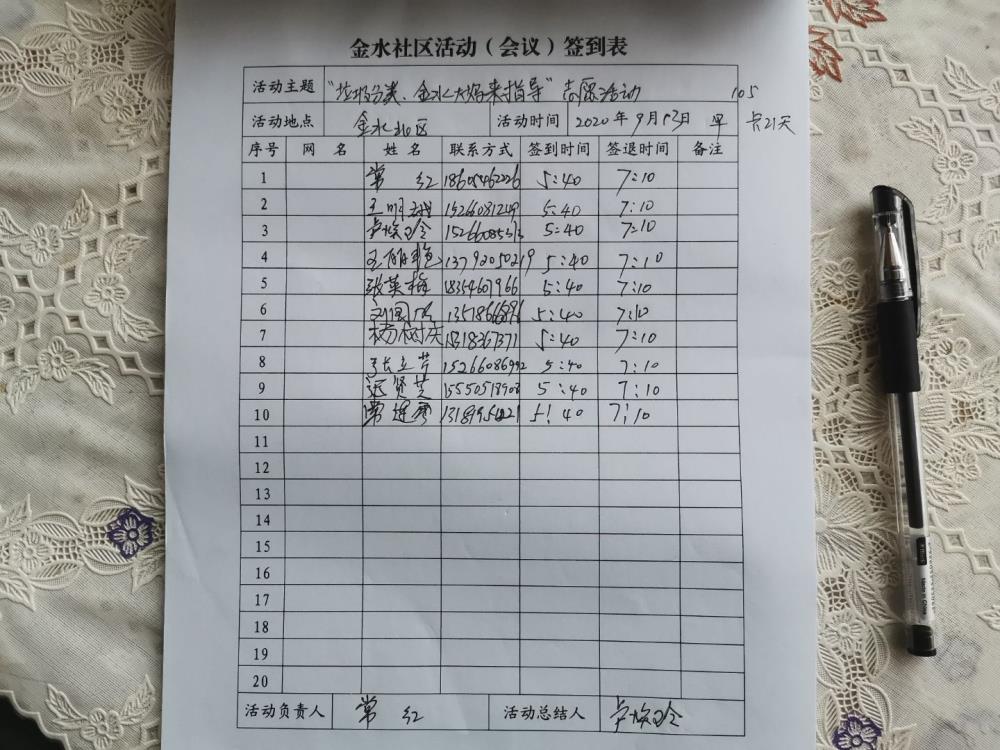 金水社区活动(会议)签到表
活动主题 "垃圾分类、金水大妈来指导"志愿活动 105
活动地点 金水社区 活动时间 2020年9月13日 早 共21天
序号 网 名 姓 名 联系方式 签到时间 签退时间 备注
1 常 红 5:40 7:10
2 15266081249 5:40 7:10
3 卢焕玲 5:40 7:10
4 13792050219 5:40 7:10
5 张英梅 18354607966 5:40 7:10
6 5:40 7:10
7 杨树庆 5:40 7:10
8 张立芹 15266086992 5:40 7:10
9 远贤芝 15550518908 5:40 7:10
10 5:40 7:10
11
12
13
14
15
16
17
18
19
20
活动负责人 常 红 活动总结人 卢焕玲
Made in China